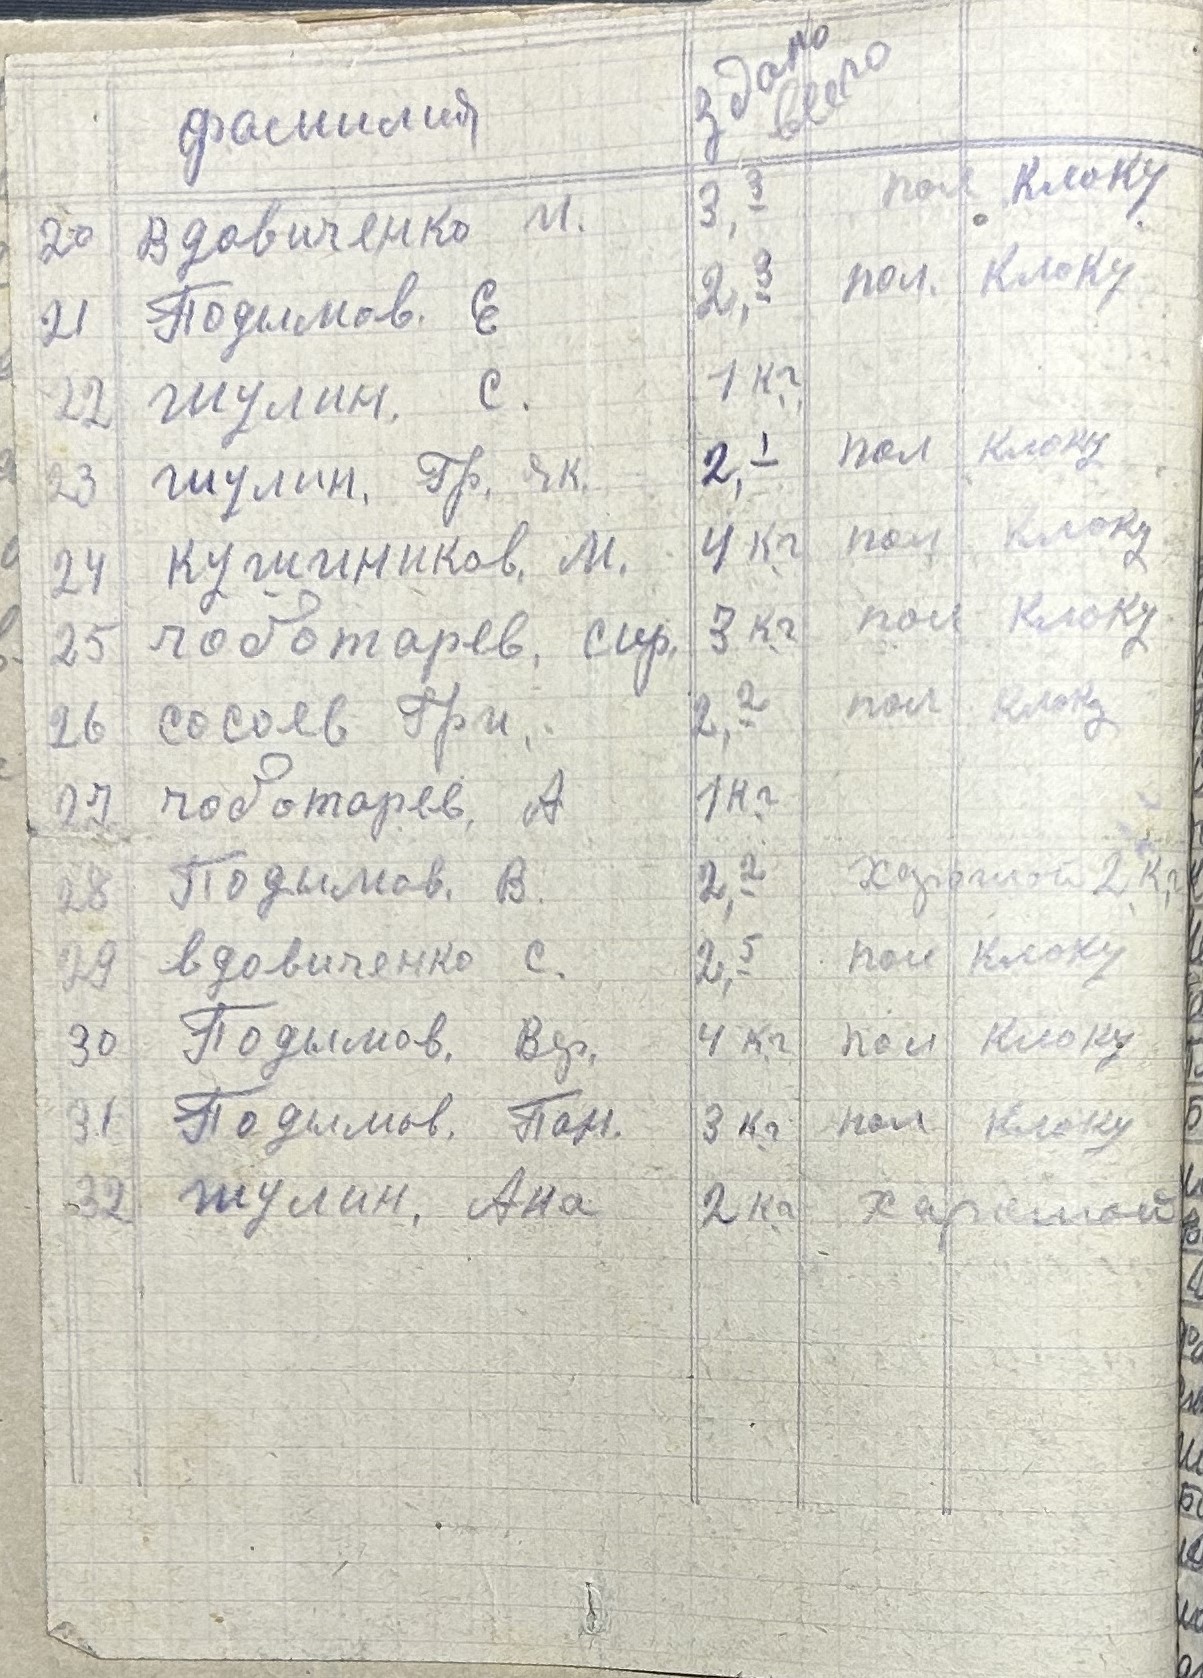 фамилия здано всего
20 Вдовиченко М. 3,3 пол клоку
21 Подымов. Е 2,3 пол. клоку
22 шулин. С. 1 кг
23 шулин. Гр. як. 2,1 пол клоку
24 М. 4 кг пол клоку
25 чоботарев. спр. 3 кг пол клоку
26 сосоев Гри. 2,2 пол клоку
27 чоботарев. А 1 кг
28 Подымов. В. 2,2 харошой 2 кг
29 вдовиченко с. 2,5 пол клоку
30 Подымов. 4 кг пол клоку
31 Подымов. Пан. 3 кг пол клоку
32 шулин. Ана 2 кг харошой